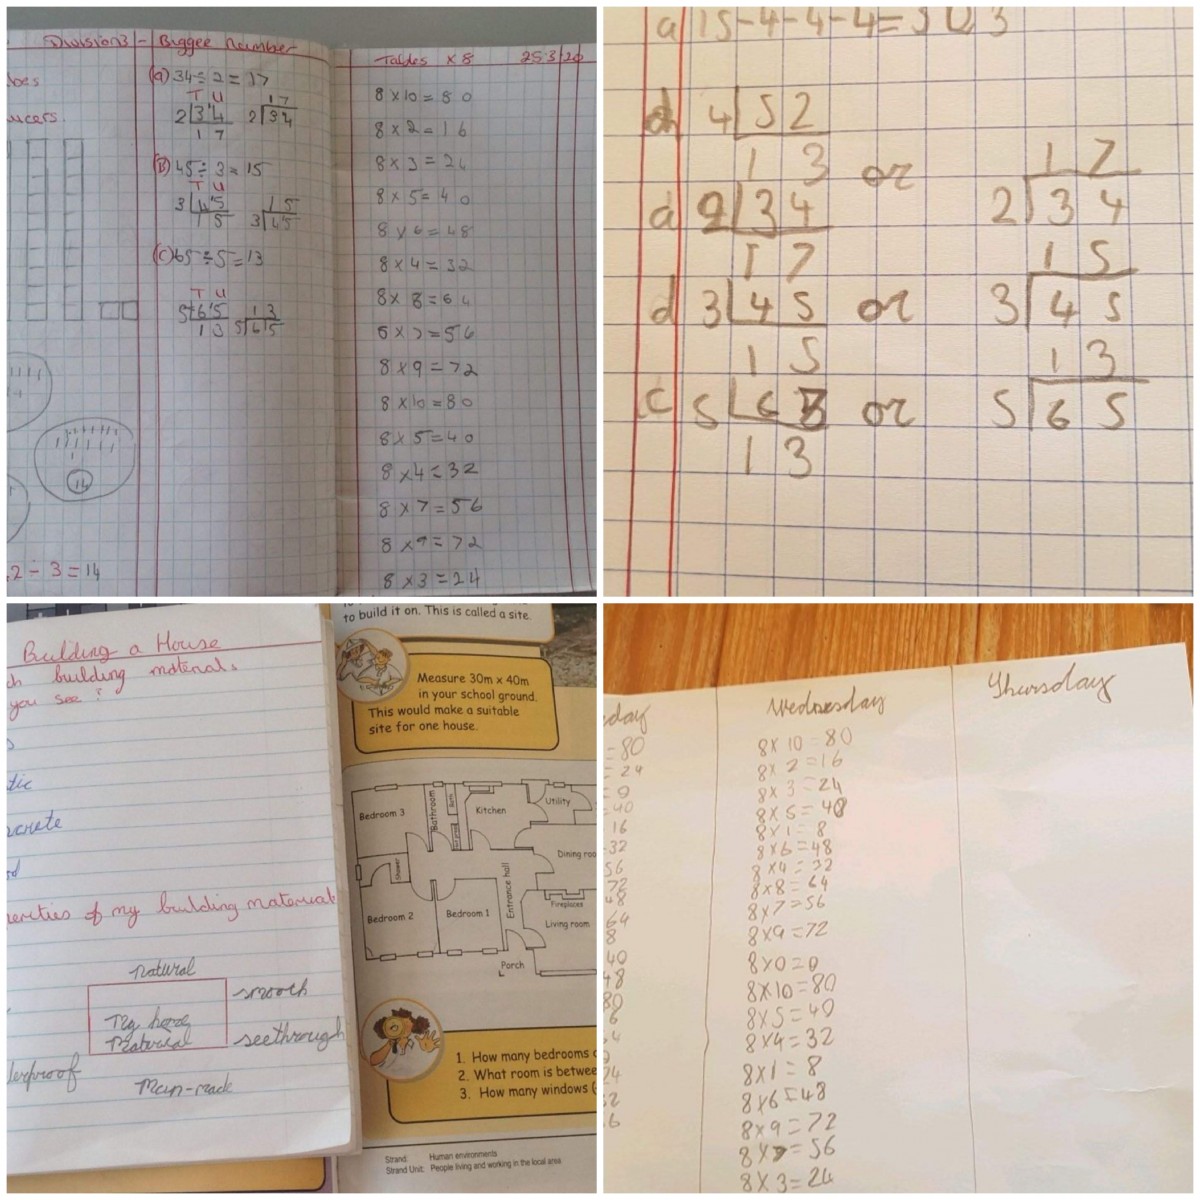 Division 3 - Bigger number
(a) 34 ÷ 2 = 17
T U
2 3 4 2 34
1 7
17
(B) 45 ÷ 3 = 15
T U
3 4 5 3 45
1 5
15
(c) 65 ÷ 5 = 13
T U
5 6 5 5 65
1 3
13
ucers.
14
2 ÷ 3 = 14
Tables x 8 25 3/20
8 x 10 = 80
8 x 2 = 16
8 x 3 = 24
8 x 5 = 40
8 x 6 = 48
8 x 4 = 32
8 x 8 = 64
x 7 = 56
8 x 9 = 72
8 x 10 = 80
8 x 5 = 40
8 x 4 = 32
8 x 7 = 56
8 x 9 = 72
8 x 3 = 24
a 15-4-4-4=3 3
4 52
1 3
or
1 7
a 2 34
2 34
1 7
or
1 5
d 3 45
3 45
1 5
or
1 3
c 5 6
5 65
1 3
Building a House
ch building material.
you see?
tic
crete
erties of my building material
natural
smooth
My home
Material
seethrough
erproof
Man-made
to build it on. This is called a site.
Measure 30m x 40m
in your school ground.
This would make a suitable
site for one house.
Bedroom 3
Bathroom
Kitchen
Utility
Shower
Dining roo
Bedroom 2
Bedroom 1
Entrance hall
Fireplaces
Living room
Porch
1. How many bedrooms
2. What room is betwee
3. How many windows
Strand: Human environments
Strand Unit: People living and working in the local area
day
=80
=24
=0
=40
16
32
56
72
48
64
8
40
48
80
24
Wednesday
8x 10 = 80
8x 2 = 16
8x 3 = 24
8x 5 = 40
8x1 = 8
8x6 = 48
8x4 = 32
8x8 = 64
8x7 = 56
8x9 = 72
8x0 = 0
8x10 = 80
8x5 = 40
8x4 = 32
8x1 = 8
8x6 = 48
8x9 = 72
8x7 = 56
8x3 = 24
Thursday